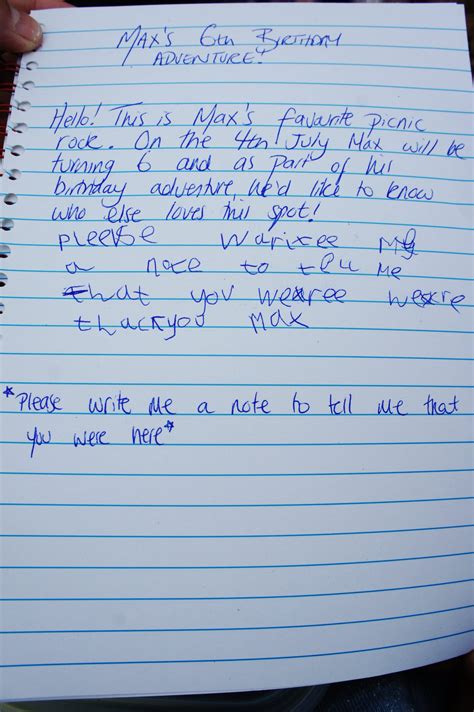 MAX'S 6th BIRTHDAY
ADVENTURE!
Hello! This is Max's favourite picnic
rock. On the 4th July Max will be
turning 6 and as part of his
birthday adventure, he'd like to know
who else loves this spot!
pleease warixee me
a note to tell me
that you wexree wexre
thackyou Max
*Please write me a note to tell me that
you were here*